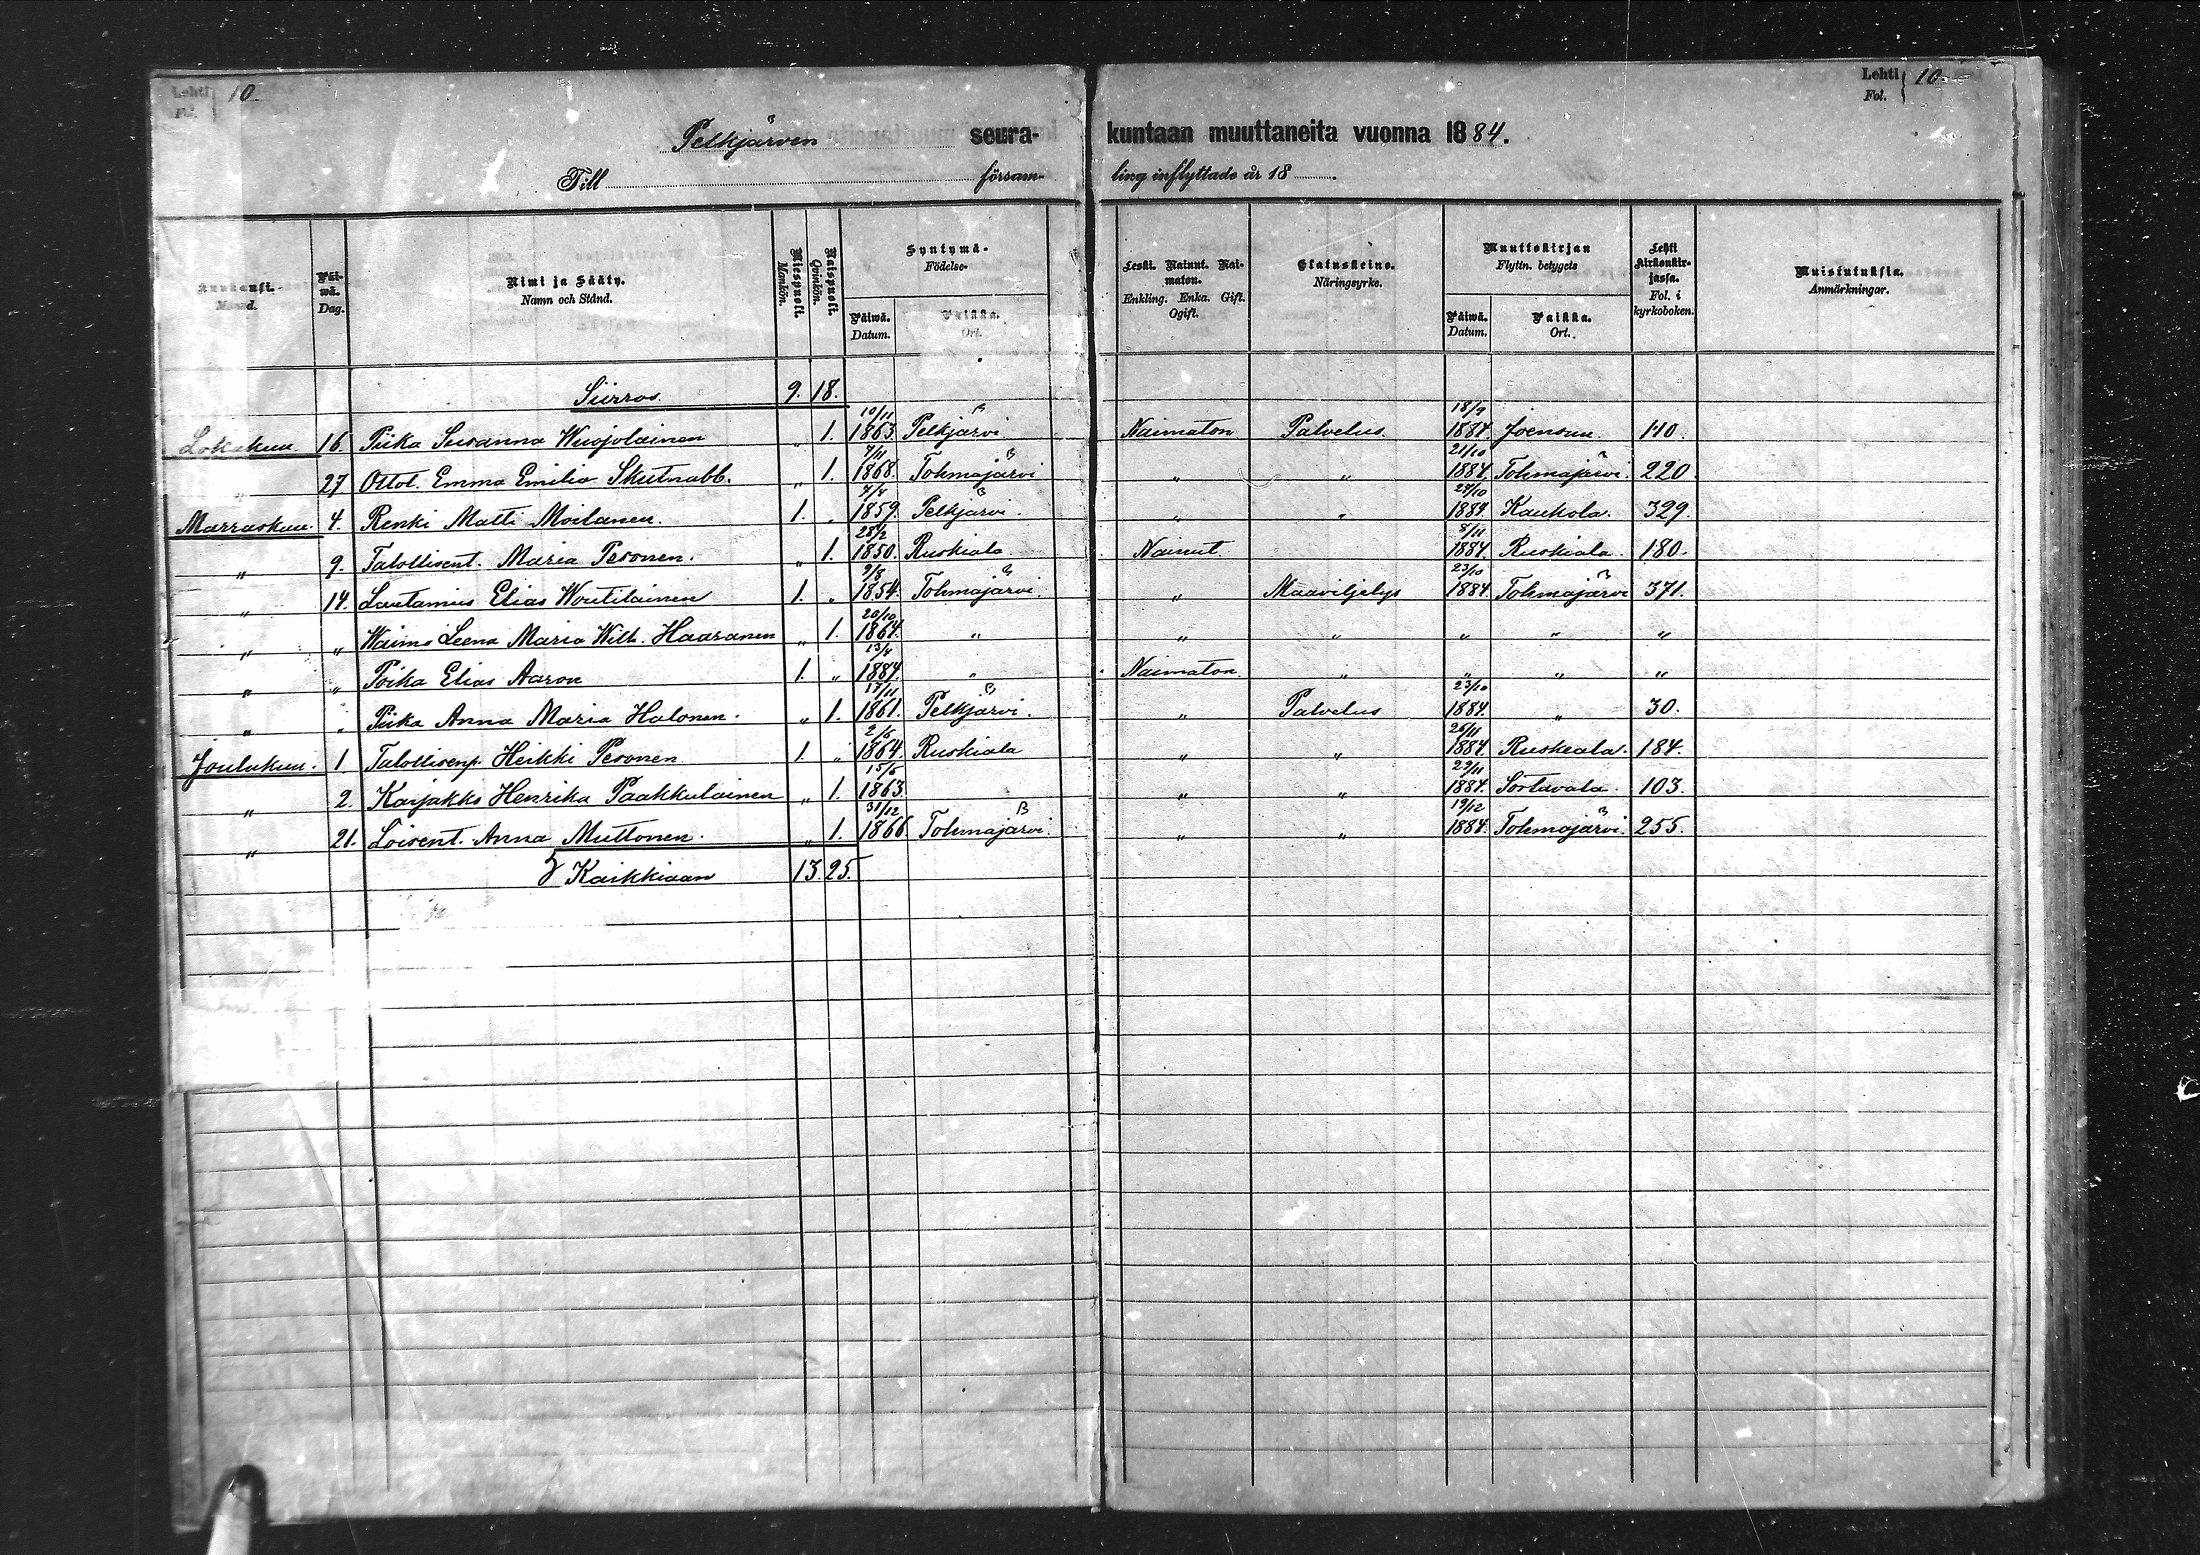 Lehti Fol. } 10.
Lehti Fol. } 10.
Pelkjärven seura- kuntaan muuttaneita vuonna 1884.
Till försam- ling inflyttade år 18
Kuukausi. Månad. Päiwä. Dag. Nimi ja Sääty. Namn och Stånd. Miespuoli. Mankön. Naispuoli. Qvinkön. Syntymä- Födelse- Päiwä. Datum. Paikka. Ort. Leski. Nainut. Naimaton. Enkling. Enka. Gift. Ogift. Elatuskeino. Näringsyrke. Muuttokirjan Flyttn. betygets Päiwä. Datum. Paikka. Ort. Lehti kirkonkirjassa. Fol. i kyrkoboken. Muistutuksia. Anmärkningar.
Siirros 9. 18.
Lokakuu. 16. Piika Susanna Wuojolainen " 1. 10/11 1863. Pelkjärvi Naimaton Palvelus. 18/9 1884. Joensuu. 110.
" 27 Ottot. Emma Emilia Skutnabb. " 1. 7/11 1868. Tohmajärvi " " 21/10 1884. Tohmajärvi. 220.
Marraskuu. 4. Renki Matti Moilanen. 1. " 4/4 1859. Pelkjärvi. " " 24/10 1884. Kaukola. 329.
" 9. Talollisent. Maria Pesonen. " 1. 28/2 1850. Ruskiala Nainut. 8/11 1884. Ruskiala. 180.
" 14. Lautamies Elias Woutilainen 1. " 9/8 1854. Tohmajärvi. " Maaviljelys 23/10 1884. Tohmajärvi 371.
" " Waimo Leena Maria Wilh. Haaranen " 1. 20/10 1864. " " " " " "
" " Poika Elias Aaron 1. " 13/4 1884. " Naimaton. " " " "
" " Piika Anna Maria Halonen. " 1. 17/11 1861. Pelkjärvi. " Palvelus 23/10 1884. " 30.
Joulukuu. 1. Talollisenp. Heikki Pesonen 1. " 2/5 1864. Ruskiala " " 26/11 1884. Ruskeala. 184.
" 2. Karjakko Henrika Paakkulainen " 1. 15/6 1863. " " 29/11 1884. Sortavala. 103.
" 21. Loisent. Anna Muttonen. " 1. 31/12 1866. Tohmajärvi. " " 19/12 1884. Tohmajärvi. 255.
Kaikkiaan 13. 25.